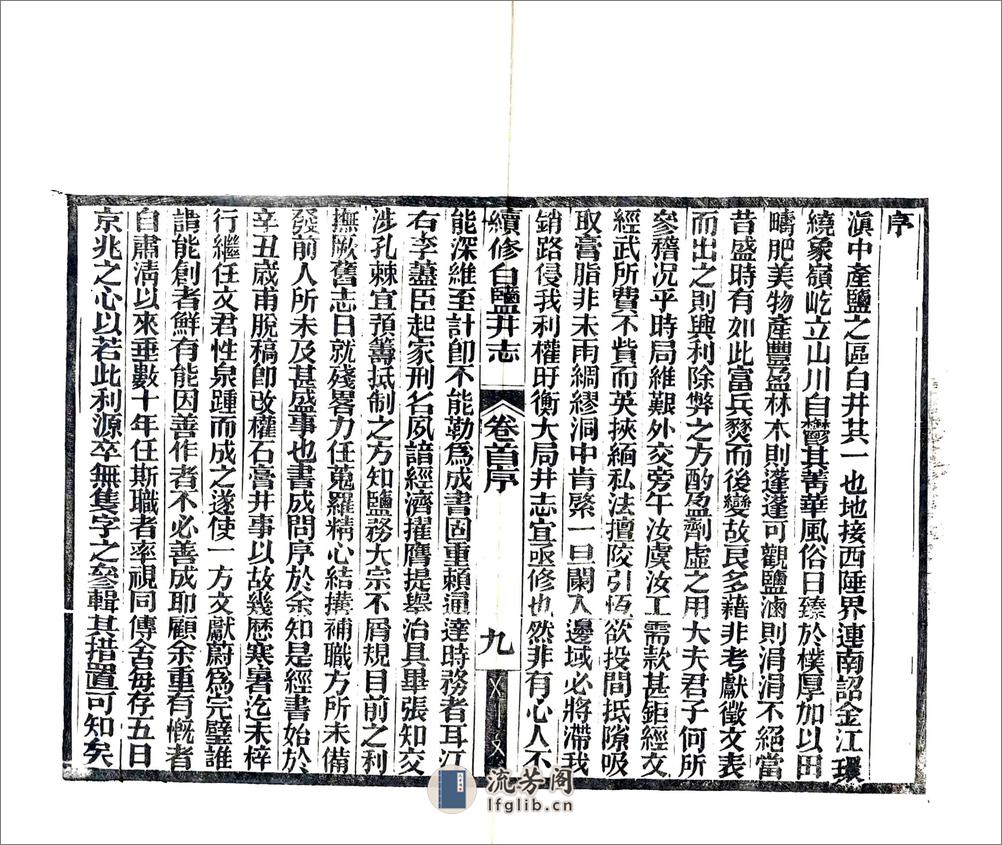 序
滇中產鹽之區白井其一也地接西陲界連南詔金江環
繞象嶺屹立山川自鬱其菁華風俗日臻於樸厚加以田
疇肥美物產豐盈林木則蓬蓬可觀鹽滷則涓涓不絕當
昔盛時有如此富兵燹而後變故良多藉非考獻徵文表
而出之則興利除弊之方酌盈劑虛之用大夫君子何所
參稽况乎時局維艱外交旁午汝虞汝工需款甚鉅經文
經武所費不貲而英挾緬私法擅陵引恆欲投間抵隙吸
取膏脂非未雨綢繆洞中肯綮一旦闌入邊域必將滯我
銷路侵我利權盱衡大局井志宜亟修也然非有心人不
續修白鹽井志
卷首序
九
能深維至計卽不能勒爲成書固重賴通達時務者耳江
右李藎臣起家刑名夙諳經濟擢膺提舉治具畢張知交
涉孔棘宜預籌抵制之方知鹽務大宗不屑規目前之利
撫厥舊志日就殘畧力任蒐羅精心結撰補職方所未備
發前人所未及甚盛事也書成問序於余知是經書始於
辛丑歲甫脫稿卽改權石膏井事以故幾歷寒暑迄未梓
行繼任文君性泉踵而成之遂使一方文獻蔚爲完璧誰
謂能創者鮮有能因善作者不必善成耶顧余重有慨者
自肅清以來垂數十年任斯職者率視同傳舍每存五日
京兆之心以若此利源卒無隻字之參輯其措置可知矣
流芳閣
lfglib.cn